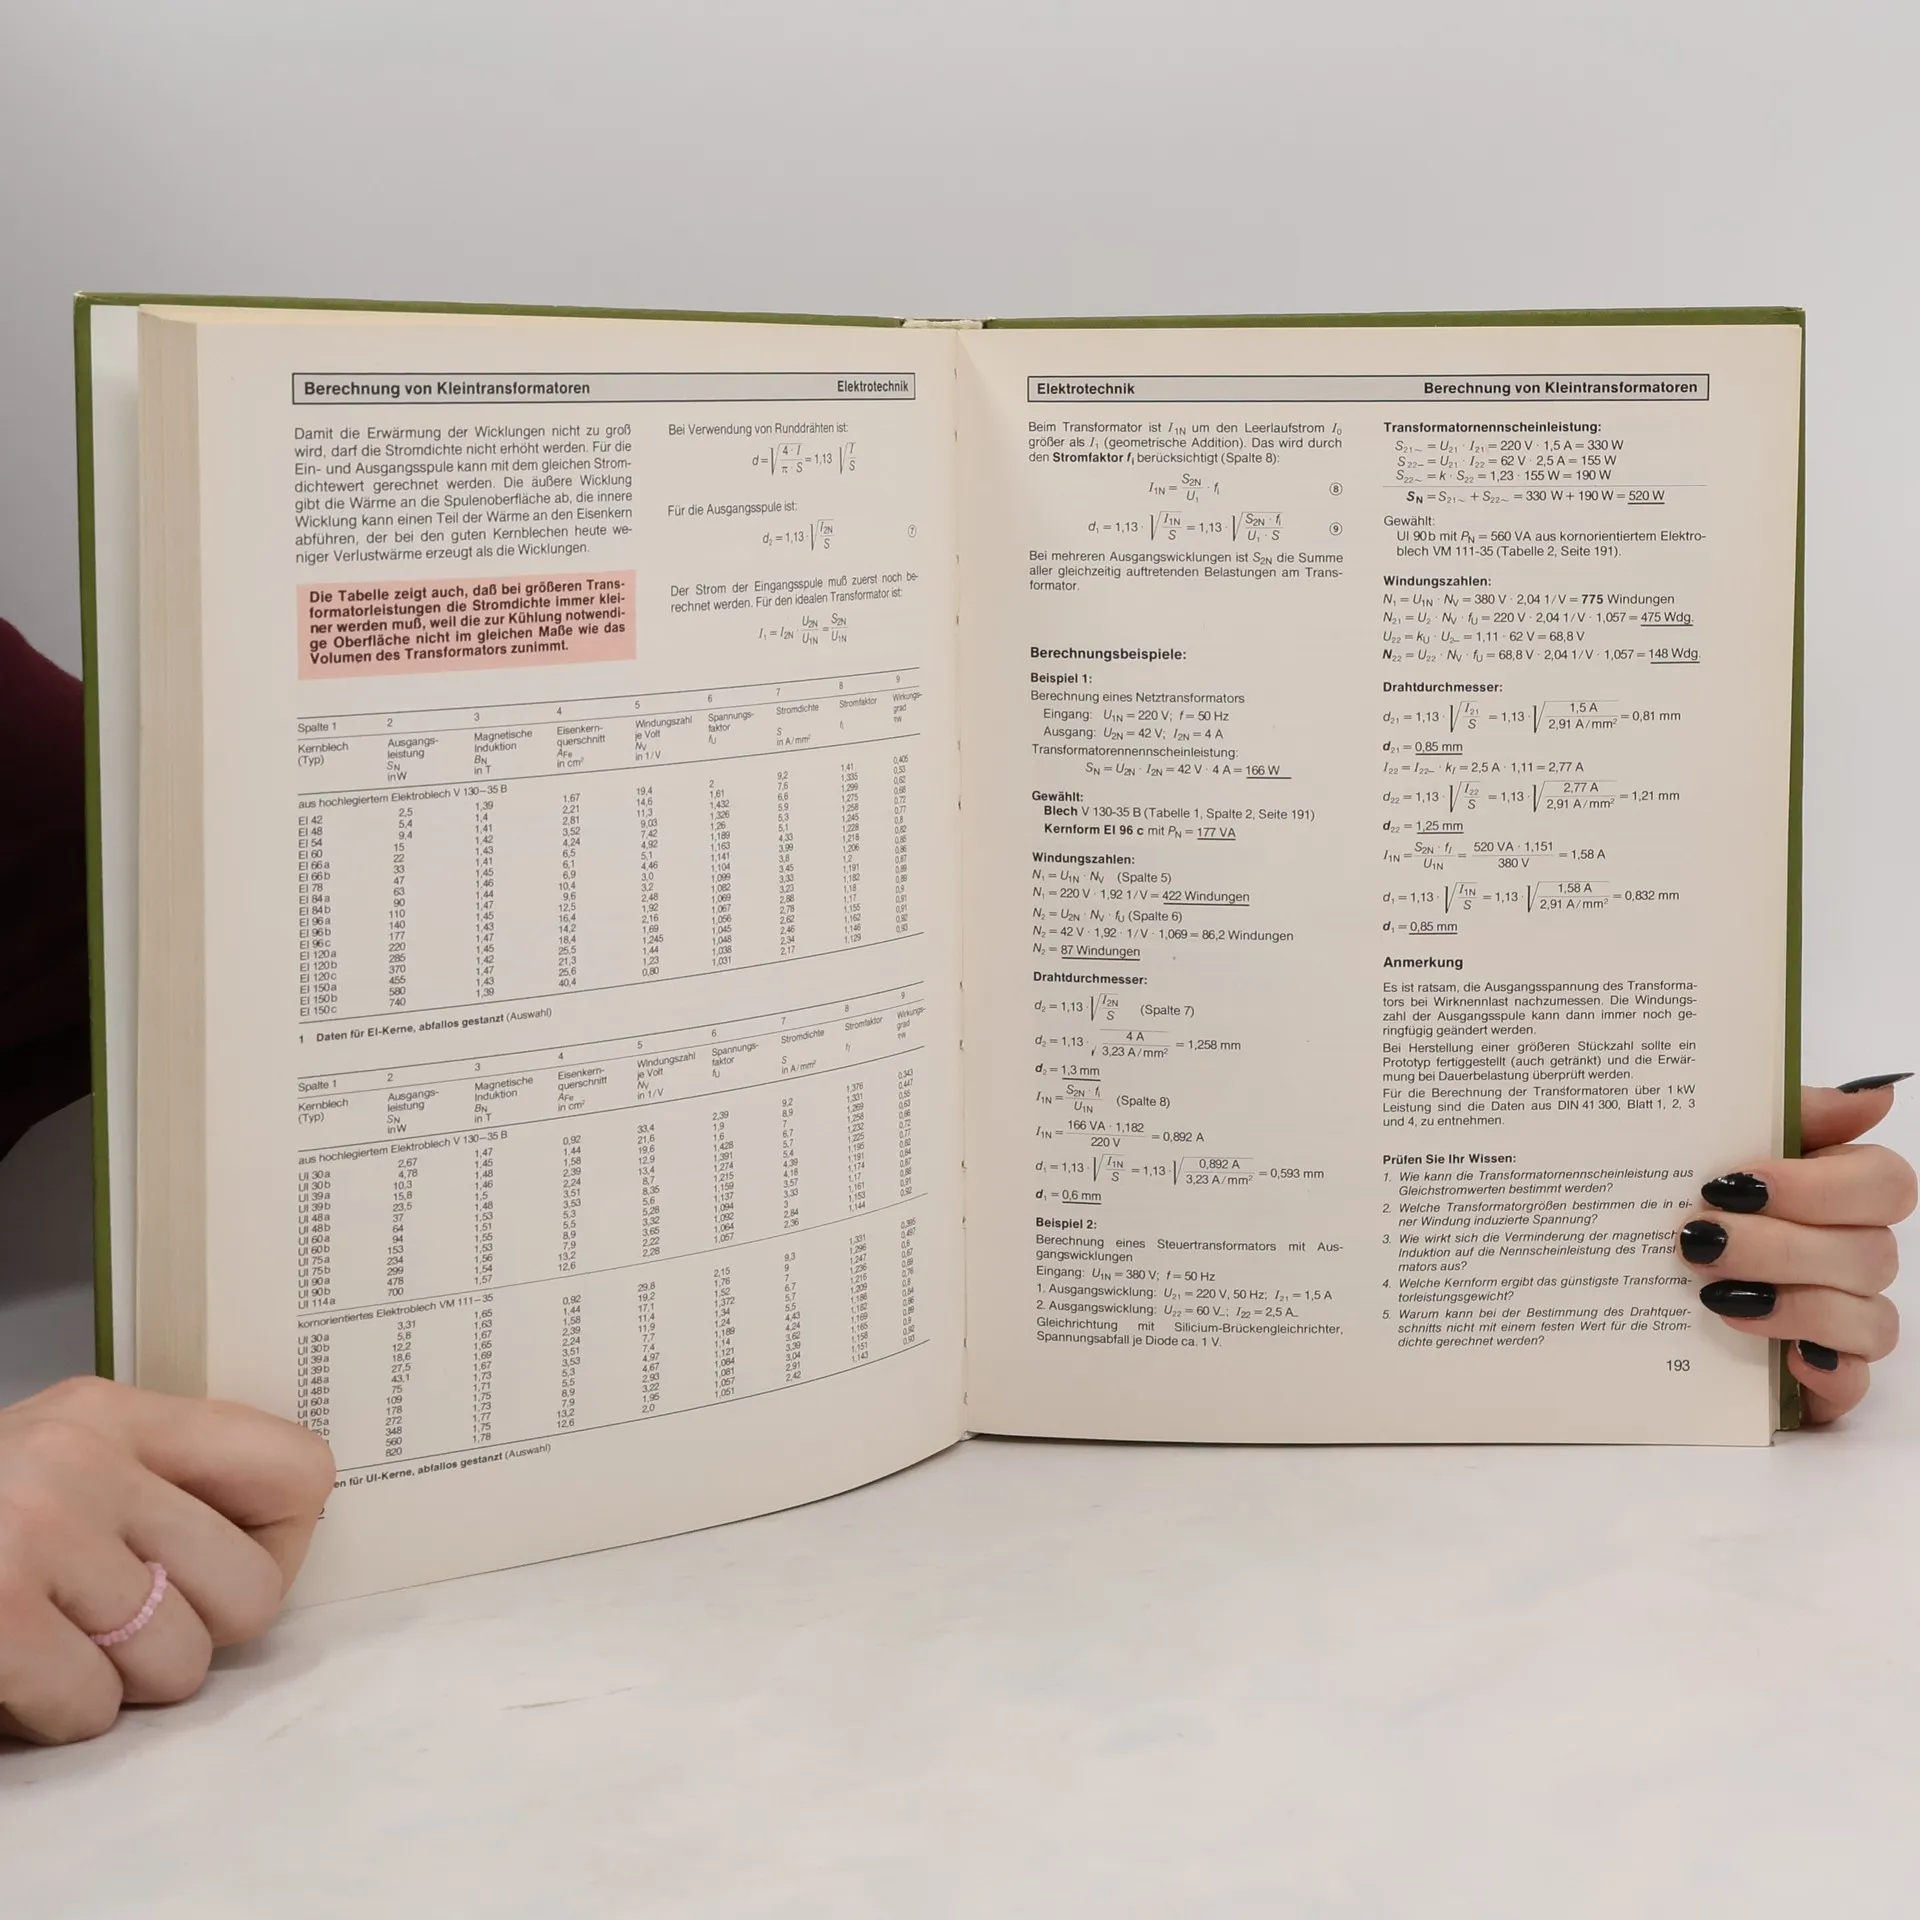 Berechnung von Kleintransformatoren Elektrotechnik
Damit die Erwärmung der Wicklungen nicht zu groß
wird, darf die Stromdichte nicht erhöht werden. Für die
Ein- und Ausgangsspule kann mit dem gleichen Strom-
dichtewert gerechnet werden. Die äußere Wicklung
gibt die Wärme an die Spulenoberfläche ab, die innere
Wicklung kann einen Teil der Wärme an den Eisenkern
abführen, der bei den guten Kernblechen heute we-
niger Verlustwärme erzeugt als die Wicklungen.
Die Tabelle zeigt auch, daß bei größeren Trans-
formatorleistungen die Stromdichte immer klei-
ner werden muß, weil die zur Kühlung notwendi-
ge Oberfläche nicht im gleichen Maße wie das
Volumen des Transformators zunimmt.
Bei Verwendung von Runddrähten ist:
d = √(4 · I / π · S) = 1,13 √(I / S)
Für die Ausgangsspule ist:
d₂ = 1,13 · √(I2N / S) ⑦
Der Strom der Eingangsspule muß zuerst noch be-
rechnet werden. Für den idealen Transformator ist:
I₁ = I2N · U2N / U1N = S2N / U1N
Spalte 1 2 3 4 5 6 7 8 9
Kernblech (Typ) Ausgangs-leistung SN in W Magnetische Induktion BN in T Eisenkern-querschnitt AFe in cm² Windungszahl je Volt NV in 1/V Spannungs-faktor fU Stromdichte S in A/mm² Stromfaktor fI Wirkungs-grad
aus hochlegiertem Elektroblech V 130–35 B
EI 42 2,5 1,39 1,67 19,4 2 9,2 1,41 0,405
EI 48 5,4 1,4 2,21 14,6 1,61 7,6 1,335 0,53
EI 54 9,4 1,41 2,81 11,3 1,432 6,6 1,299 0,62
EI 60 15 1,42 3,52 9,03 1,326 5,9 1,275 0,68
EI 66 a 22 1,43 4,24 7,42 1,26 5,3 1,258 0,72
EI 66 b 33 1,41 6,5 4,92 1,189 5,1 1,245 0,77
EI 78 47 1,45 6,1 5,1 1,163 4,33 1,228 0,8
EI 84 a 63 1,46 6,9 4,46 1,141 3,99 1,218 0,82
EI 84 b 90 1,44 10,4 3,0 1,104 3,8 1,206 0,85
EI 96 a 110 1,47 9,6 3,2 1,099 3,45 1,2 0,86
EI 96 b 140 1,45 12,5 2,48 1,082 3,33 1,191 0,87
EI 96 c 177 1,43 16,4 1,92 1,069 3,23 1,182 0,89
EI 120 a 220 1,47 14,2 2,16 1,067 2,88 1,18 0,89
EI 120 b 285 1,45 18,4 1,69 1,056 2,78 1,17 0,9
EI 120 c 370 1,42 25,5 1,245 1,045 2,62 1,155 0,91
EI 150 a 455 1,47 21,3 1,44 1,048 2,46 1,162 0,91
EI 150 b 580 1,43 25,6 1,23 1,038 2,34 1,146 0,92
EI 150 c 740 1,39 40,4 0,80 1,031 2,17 1,129 0,93
1 Daten für EI-Kerne, abfallos gestanzt (Auswahl)
Spalte 1 2 3 4 5 6 7 8 9
Kernblech (Typ) Ausgangs-leistung SN in W Magnetische Induktion BN in T Eisenkern-querschnitt AFe in cm² Windungszahl je Volt NV in 1/V Spannungs-faktor fU Stromdichte S in A/mm² Stromfaktor fI Wirkungs-grad
aus hochlegiertem Elektroblech V 130–35 B
UI 30 a 2,67 1,47 0,92 33,4 2,39 9,2 1,376 0,343
UI 30 b 4,78 1,45 1,44 21,6 1,9 8,9 1,331 0,447
UI 39 a 10,3 1,48 1,58 19,6 1,6 7 1,269 0,55
UI 39 b 15,8 1,46 2,39 12,9 1,428 6,7 1,258 0,63
UI 48 a 23,5 1,5 2,24 13,4 1,391 5,7 1,232 0,66
UI 48 b 37 1,48 3,51 8,7 1,274 5,4 1,225 0,72
UI 60 a 64 1,53 3,53 8,35 1,215 4,39 1,195 0,77
UI 60 b 94 1,51 5,3 5,6 1,159 4,18 1,191 0,82
UI 75 a 153 1,55 5,5 5,28 1,137 3,57 1,174 0,84
UI 75 b 234 1,53 8,9 3,32 1,094 3,33 1,17 0,87
UI 90 a 299 1,56 7,9 3,65 1,092 3 1,161 0,88
UI 90 b 478 1,54 13,2 2,22 1,064 2,84 1,153 0,91
UI 114 a 700 1,57 12,6 2,28 1,057 2,36 1,144 0,92
kornorientiertes Elektroblech VM 111–35
UI 30 a 3,31 1,65 0,92 29,8 2,15 9,3 1,331 0,385
UI 30 b 5,8 1,63 1,44 19,2 1,76 9 1,296 0,497
UI 39 a 12,2 1,67 1,58 17,1 1,52 7 1,247 0,6
UI 39 b 18,6 1,65 2,39 11,4 1,372 6,7 1,236 0,67
UI 48 a 27,5 1,69 2,24 11,9 1,34 5,7 1,216 0,69
UI 48 b 43,1 1,67 3,51 7,7 1,24 5,5 1,209 0,76
UI 60 a 75 1,73 3,53 7,4 1,189 4,43 1,186 0,8
UI 60 b 109 1,71 5,3 4,97 1,14 4,24 1,182 0,84
75 a 178 1,75 5,5 4,67 1,121 3,62 1,169 0,86
b 272 1,73 8,9 2,93 1,084 3,39 1,165 0,89
348 1,77 7,9 3,22 1,081 3,04 1,158 0,9
560 1,75 13,2 1,95 1,057 2,91 1,151 0,92
820 1,78 12,6 2,0 1,051 2,42 1,143 0,93
en für UI-Kerne, abfallos gestanzt (Auswahl)
Elektrotechnik Berechnung von Kleintransformatoren
Beim Transformator ist I1N um den Leerlaufstrom I₀
größer als I₁ (geometrische Addition). Das wird durch
den Stromfaktor fI berücksichtigt (Spalte 8):
I1N = S2N / U₁ · fI ⑧
d₁ = 1,13 · √(I1N / S) = 1,13 · √(S2N · fI / U₁ · S) ⑨
Bei mehreren Ausgangswicklungen ist S2N die Summe
aller gleichzeitig auftretenden Belastungen am Trans-
formator.
Berechnungsbeispiele:
Beispiel 1:
Berechnung eines Netztransformators
Eingang: U1N = 220 V; f = 50 Hz
Ausgang: U2N = 42 V; I2N = 4 A
Transformatorennennscheinleistung:
SN = U2N · I2N = 42 V · 4 A = 166 W
Gewählt:
Blech V 130-35 B (Tabelle 1, Spalte 2, Seite 191)
Kernform EI 96 c mit PN = 177 VA
Windungszahlen:
N₁ = U1N · NV (Spalte 5)
N₁ = 220 V · 1,92 1/V = 422 Windungen
N₂ = U2N · NV · fU (Spalte 6)
N₂ = 42 V · 1,92 · 1/V · 1,069 = 86,2 Windungen
N₂ = 87 Windungen
Drahtdurchmesser:
d₂ = 1,13 · √(I2N / S) (Spalte 7)
d₂ = 1,13 · √(4 A / 3,23 A/mm²) = 1,258 mm
d₂ = 1,3 mm
I1N = S2N · fI / U1N (Spalte 8)
I1N = 166 VA · 1,182 / 220 V = 0,892 A
d₁ = 1,13 · √(I1N / S) = 1,13 · √(0,892 A / 3,23 A/mm²) = 0,593 mm
d₁ = 0,6 mm
Beispiel 2:
Berechnung eines Steuertransformators mit Aus-
gangswicklungen
Eingang: U1N = 380 V; f = 50 Hz
1. Ausgangswicklung: U21 = 220 V, 50 Hz; I21 = 1,5 A
2. Ausgangswicklung: U22 = 60 V–; I22 = 2,5 A–
Gleichrichtung mit Silicium-Brückengleichrichter,
Spannungsabfall je Diode ca. 1 V.
Transformatornennscheinleistung:
S21~ = U21 · I21 = 220 V · 1,5 A = 330 W
S22– = U21 · I22 = 62 V · 2,5 A = 155 W
S22~ = k · S22 = 1,23 · 155 W = 190 W
SN = S21~ + S22~ = 330 W + 190 W = 520 W
Gewählt:
UI 90 b mit PN = 560 VA aus kornorientiertem Elektro-
blech VM 111-35 (Tabelle 2, Seite 191).
Windungszahlen:
N₁ = U1N · NV = 380 V · 2,04 1/V = 775 Windungen
N21 = U₂ · NV · fU = 220 V · 2,04 1/V · 1,057 = 475 Wdg.
U22 = kU · U2– = 1,11 · 62 V = 68,8 V
N22 = U22 · NV · fU = 68,8 V · 2,04 1/V · 1,057 = 148 Wdg.
Drahtdurchmesser:
d21 = 1,13 · √(I21 / S) = 1,13 · √(1,5 A / 2,91 A/mm²) = 0,81 mm
d21 = 0,85 mm
I22 = I22– · kf = 2,5 A · 1,11 = 2,77 A
d22 = 1,13 · √(I22 / S) = 1,13 · √(2,77 A / 2,91 A/mm²) = 1,21 mm
d22 = 1,25 mm
I1N = S2N · fI / U1N = 520 VA · 1,151 / 380 V = 1,58 A
d₁ = 1,13 · √(I1N / S) = 1,13 · √(1,58 A / 2,91 A/mm²) = 0,832 mm
d₁ = 0,85 mm
Anmerkung
Es ist ratsam, die Ausgangsspannung des Transforma-
tors bei Wirknennlast nachzumessen. Die Windungs-
zahl der Ausgangsspule kann dann immer noch ge-
ringfügig geändert werden.
Bei Herstellung einer größeren Stückzahl sollte ein
Prototyp fertiggestellt (auch getränkt) und die Erwär-
mung bei Dauerbelastung überprüft werden.
Für die Berechnung der Transformatoren über 1 kW
Leistung sind die Daten aus DIN 41 300, Blatt 1, 2, 3
und 4, zu entnehmen.
Prüfen Sie Ihr Wissen:
1. Wie kann die Transformatornennscheinleistung aus
Gleichstromwerten bestimmt werden?
2. Welche Transformatorgrößen bestimmen die in ei-
ner Windung induzierte Spannung?
3. Wie wirkt sich die Verminderung der magnetisch
Induktion auf die Nennscheinleistung des Transf
mators aus?
4. Welche Kernform ergibt das günstigste Transforma-
torleistungsgewicht?
5. Warum kann bei der Bestimmung des Drahtquer-
schnitts nicht mit einem festen Wert für die Strom-
dichte gerechnet werden?
193